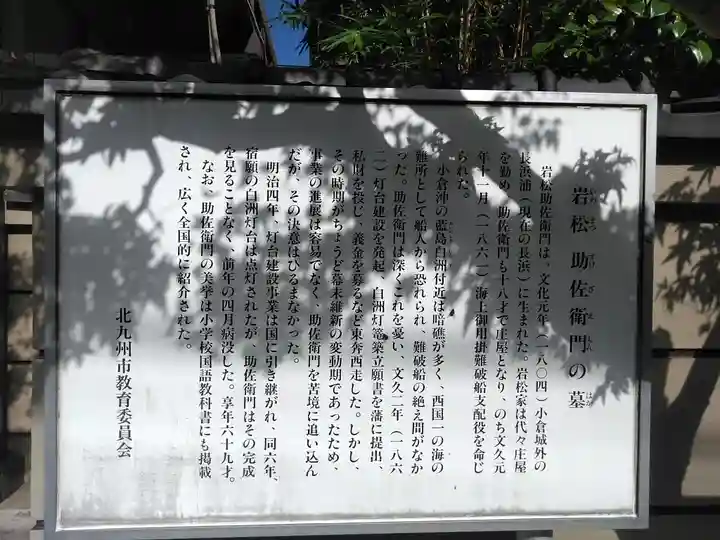 岩松助佐衛門の墓
岩松助佐衛門は、文化元年（一八〇四）小倉城外の
長浜浦（現在の長浜）に生まれた。岩松家は代々庄屋
を勤め、助佐衛門も十八才で庄屋となり、のち文久元
年十一月（一八六一）海上御用掛難破船支配役を命じ
られた。
小倉沖の藍島白洲付近は暗礁が多く、西国一の海の
難所として船人から恐れられ、難破船の絶え間がなか
った。助佐衛門は深くこれを憂い、文久二年（一八六
二）灯台建設を発起、白洲灯篭築立願書を藩に提出、
私財を投じ、義金を募るなど東奔西走した。しかし、
その時期がちょうど幕末維新の変動期であったため、
事業の進展は容易でなく、助佐衛門を苦境に追い込ん
だが、その決意はひるまなかった。
明治四年、灯台建設事業は国に引き継がれ、同六年、
宿願の白洲灯台は点灯されたが、助佐衛門はその完成
を見ることなく、前年の四月病没した。享年六十九才。
なお、助佐衛門の美挙は小学校国語教科書にも掲載
され、広く全国的に紹介された。
北九州市教育委員会